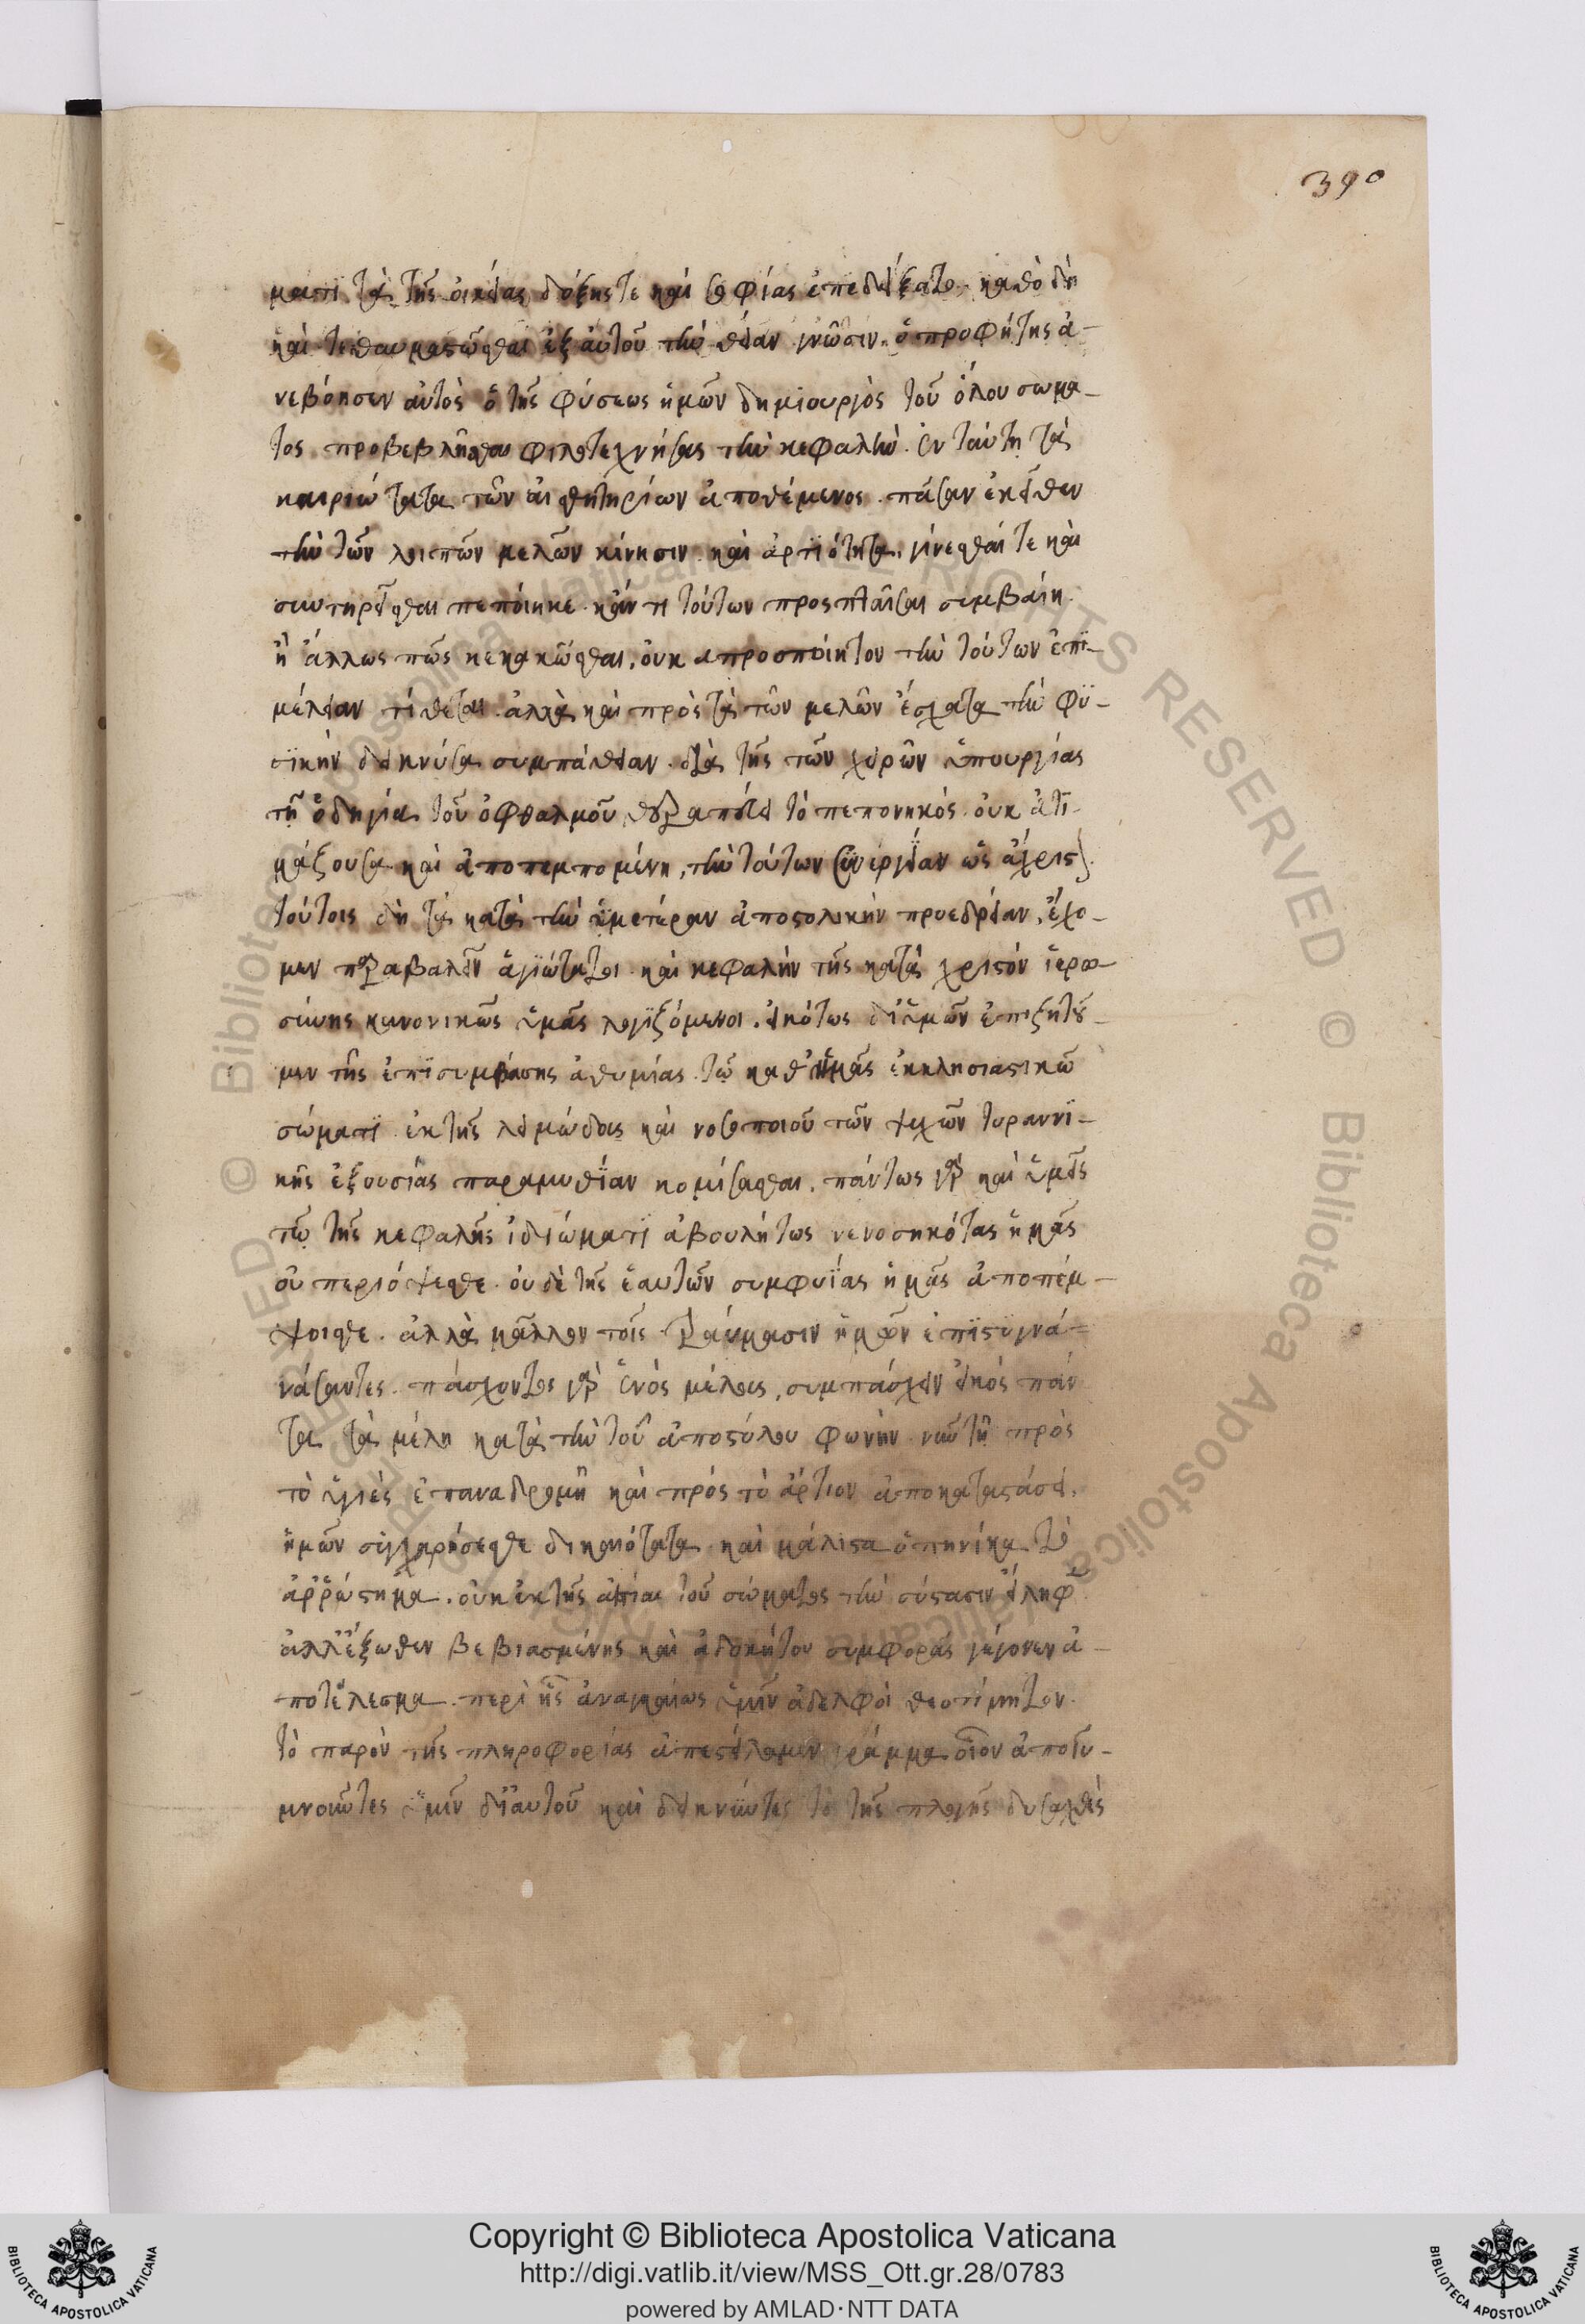 390
ματι τὰ τῆς οἰκείας δόξης τε καὶ σοφίας ἐπεδείξατο, καθὸ δὴ
καὶ τεθαυμαστῶσθαι ἐξ αὐτοῦ τὴν θείαν γνῶσιν ὁ προφήτης ἀ-
νεβόησεν αὐτὸς ὁ τῆς φύσεως ἡμῶν δημιουργὸς τοῦ ὅλου σώμα-
τος προβεβλῆσθαι φιλοτεχνήσας τὴν κεφαλήν. ἐν ταύτῃ τὰ
καιριώτατα τῶν αἰσθητηρίων ἀποθέμενος. πᾶσαν ἐκεῖθεν
τὴν τῶν λοιπῶν μελῶν κίνησιν καὶ ἀρτιότητα, γίνεσθαί τε καὶ
συντηρεῖσθαι πεποίηκε. κἄν τι τούτων προσπταῖσαι συμβαίη.
ἢ ἄλλως πῶς κεκακῶσθαι, οὐκ απροσποίητον τὴν τούτων ἐπι-
μέλειαν τίθεται. ἀλλὰ καὶ πρὸς τὰ τῶν μελῶν ἔσχατα τὴν φυ-
σικὴν δεικνῦσα συμπάθειαν. διὰ τῆς τῶν χειρῶν ὑπουργίας
τῇ ὁδηγίᾳ τοῦ ὀφθαλμοῦ θεραπεύει τὸ πεπονηκός. οὐκ ἀτι-
μάζουσα καὶ ἀποπεμπομένη, τὴν τούτων συνεργείαν ὡς ἄχρηστον.
τούτοις δὴ τὰ κατὰ τὴν ὑμετέραν ἀποστολικὴν προεδρείαν, ἔχο-
μεν παραβαλεῖν ἁγιώτητοι καὶ κεφαλὴν τῆς κατὰ χριστὸν ἱερω-
σύνης κανονικῶς ὑμᾶς λογιζόμενοι. εἰκότως δι' ὑμῶν ἐπιζητοῦ-
μεν τῆς ἐπισυμβάσης ἀθυμίας τῷ καθ' ἡμᾶς ἐκκλησιαστικῷ
σώματι ἐκ τῆς λοιμώδους καὶ νοσοποιοῦ τῶν ψυχῶν τυραννι-
κῆς ἐξουσίας παραμυθίαν κομίσασθαι. πάντως γὰρ καὶ ὑμεῖς
τῷ τῆς κεφαλῆς ἰδιώματι ἀβουλήτως νενοσηκότας ἡμᾶς
οὐ περιόψεσθε. οὐδὲ τῆς ἑαυτῶν συμφυΐας ἡμᾶς ἀποπέμ-
ψοισθε. ἀλλὰ μᾶλλον τοῖς τραύμασιν ἡμῶν ἐπιστυγνά-
νάσαντες. πάσχοντος γὰρ ἑνὸς μέλους, συμπάσχειν εἰκὸς πάν
τα τὰ μέλη κατὰ τὴν τοῦ ἀποστόλου φωνήν. κἀν τῇ πρὸς
τὸ ὑγιὲς ἐπαναδρομῇ καὶ πρὸς τὸ ἄρτιον ἀποκαταστάσει,
ἡμῶν συγχαρήσεσθε δικαιότατα καὶ μάλιστα ὁπηνίκα τὸ
ἀρρώστημα. οὐκ ἐκ τῆς αἰτίας τοῦ σώματος τὴν σύστασιν εἴληφε
ἀλλ' ἔξωθεν βεβιασμένης καὶ ἀδοκήτου συμφορᾶς γέγονεν ἀ-
ποτέλεσμα. περὶ ἧς ἀναγκαίως ὑμῖν ἀδελφοὶ θεοτίμητοι
τὸ παρὸν τῆς πληροφορίας ἀπεστείλαμεν γράμμα οἷον ἀπογυ-
μνοῦντες ὑμῖν δι' αὐτοῦ καὶ δεικνύντες τὸ τῆς πληγῆς δυσαχθὲς
Copyright © Biblioteca Apostolica Vaticana
http://digi.vatlib.it/view/MSS_Ott.gr.28/0783
powered by AMLAD·NTT DATA
BIBLIOTECA APOSTOLICA VATICANA
BIBLIOTECA APOSTOLICA VATICANA